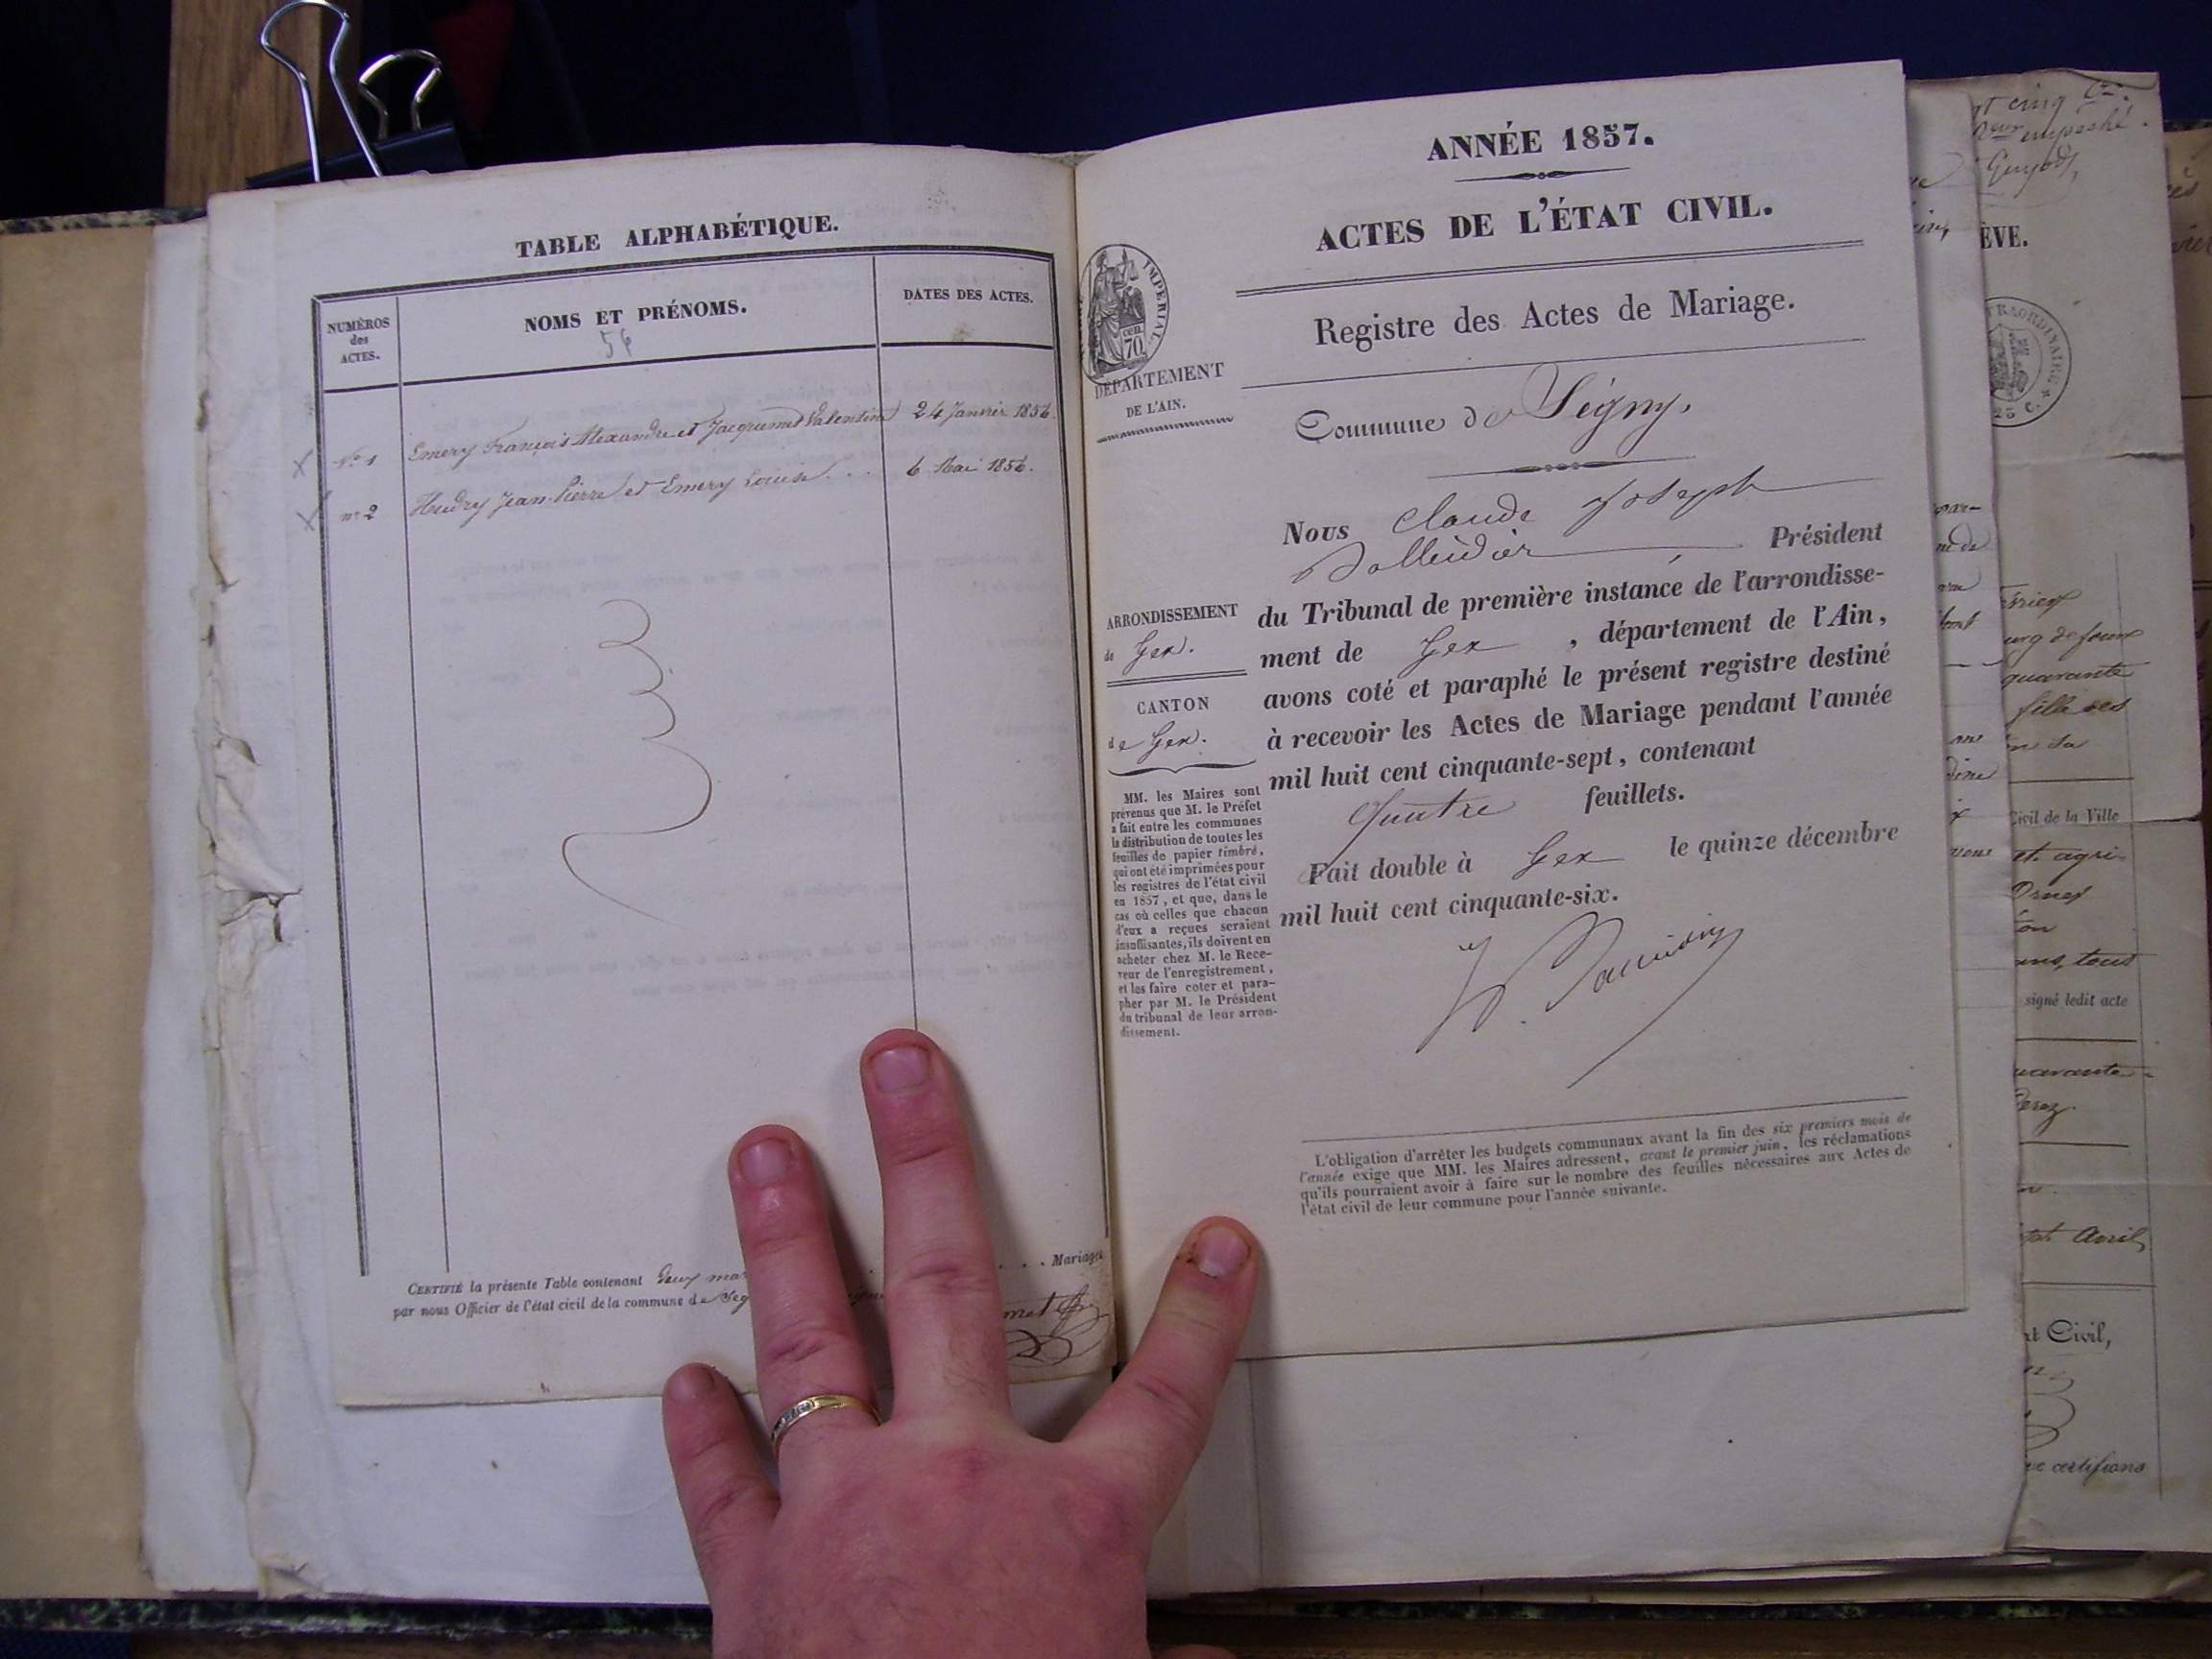 TABLE ALPHABÉTIQUE.
NUMÉROS
des
ACTES.
NOMS ET PRÉNOMS.
56
DATES DES ACTES.
N° 1 Emery François Alexandre et Jacquemet Valentine 24 Janvier 1856.
n° 2 Hudry Jean-Pierre et Emery Louise. . . 6 Mai 1856.
CERTIFIÉ la présente Table contenant deux . . . Mariages
par nous Officier de l'état civil de la commune de
ANNÉE 1857.
ACTES DE L'ÉTAT CIVIL.
Registre des Actes de Mariage.
IMPERIAL
cen.
70
DÉPARTEMENT
DE L'AIN.
Commune de Ségny.
Nous Claude Joseph
Président
du Tribunal de première instance de l'arrondisse-
ment de Gex , département de l'Ain,
avons coté et paraphé le présent registre destiné
à recevoir les Actes de Mariage pendant l'année
mil huit cent cinquante-sept, contenant
Quatre feuillets.
Fait double à Gex le quinze décembre
mil huit cent cinquante-six.
ARRONDISSEMENT
de Gex.
CANTON
de Gex.
MM. les Maires sont
prévenus que M. le Préfet
a fait entre les communes
la distribution de toutes les
feuilles de papier timbré,
qui ont été imprimées pour
les registres de l'état civil
en 1857, et que, dans le
cas où celles que chacun
d'eux a reçues seraient
insuffisantes, ils doivent en
acheter chez M. le Rece-
veur de l'enregistrement,
et les faire coter et para-
pher par M. le Président
du tribunal de leur arron-
dissement.
L'obligation d'arrêter les budgets communaux avant la fin des six premiers mois de
l'année exige que MM. les Maires adressent, avant le premier juin, les réclamations
qu'ils pourraient avoir à faire sur le nombre des feuilles nécessaires aux Actes de
l'état civil de leur commune pour l'année suivante.
ÈVE.
quarante
Civil de la Ville
et agri-
tous
signé ledit acte
Avril
Civil,
certifions